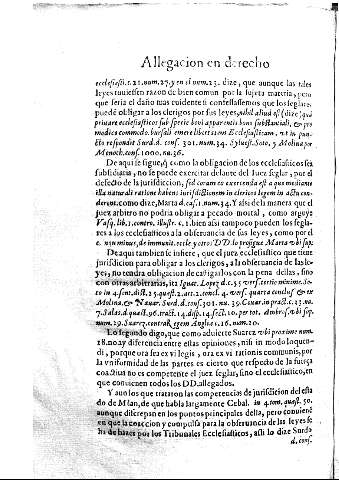 Allegacion en derecho
ecclesiast. r. 21. num. 27. y en el num. 23. dize, que aunque las tales
leyes tuuiessen razon de bien comun por la sujeta materia, pero
que seria el daño mas euidente si confessassemos que los seglares
puede obligar a los clerigos por sus leyes, nihil aliud est (dize) quã
priuare ecclesiasticos sub specie boni apparentis bono substantiali, & pro
modico commodo bursali emere libertatem Ecclesiasticam, vt in pun-
cto respondit Surd. d. cons. 301. num. 34. Syluest. Soto, y Molina por
Menoch. cons. 1000. nu. 36.
De aqui se sigue, q̃ como la obligacion de los ecclesiasticos sea
subsidiaria, no se puede exercitar delante del Iuez seglar, por el
defecto de la jurisdiccion, sed coram eo exercenda est a quo mediante
illa naturali ratione habens iurisdictionem in clericos legem in actu
deriuat. como dize, Marta d. cas. 1. num. 34. Y assi de la manera que el
juez arbitro no podria obligar a pecado mortal, como arguye
Vasq. lib. 1. contro. illustr. c. 1. bien assi tampoco pueden los segla-
res a los ecclesiasticos a la obseruancia de sus leyes, como por el
c. non minus, de immunit. eccle. y otros DD. lo prosigue Marta vbi sup.
De aqui tambien se infiere, que el juez ecclesiastico que tiene
jurisdiccion para obligar a los clerigos, a la obseruancia de las le-
yes, no tendra obligacion de castigarlos con la pena dellas, sino
con otras arbitrarias, ita Ignac. Lopez d. c. 55. vers. tertio minime. So-
to in 4. sent. dist. 25. quest. 2. art. 2. concl. 4. vers. quarta conclus. & ex
Molina, & Nauar. Surd. d. cons. 301. nu. 39. Couar. in pract. c. 33. nu.
7. Salas, d. quest. 96. tract. 14. disp. 14. sect. 10. per tot. Ambros. vbi sup.
num. 29. Suarez, contra Regem Angliæ c. 16. num. 20.
Lo segundo digo, que como aduierte Suarez vbi proxime num.
18. no ay diferencia entre estas opiniones, nisi in modo loquen-
di, porque ora sea ex vi legis, ora ex vi rationis communis, por
la vniformidad de las partes es cierto que respecto de la fuerça
coactiua no es competente el juez seglar, sino el ecclesiastico, en
que conuienen todos los DD. allegados.
Y aun los que trataron las competencias de jurisdiccion del esta
do de Milan, de que habla largamente Cebal. in 4. tom. quæst. 50.
aunque discrepan en los puntos principales della, pero conuienē
en que la coaccion y compulsa para la obseruancia de las leyes se
ha de hazer por los Tribunales Ecclesiasticos, assi lo dize Surdo
d. cons.